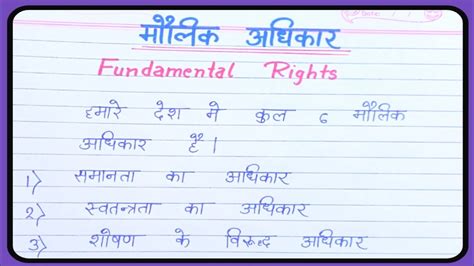 मौलिक अधिकार
Fundamental Rights
हमारे देश मे कुल ६ मौलिक
अधिकार है ।
1) समानता का अधिकार
2) स्वतन्त्रता का अधिकार
3) शोषण के विरूद्ध अधिकार